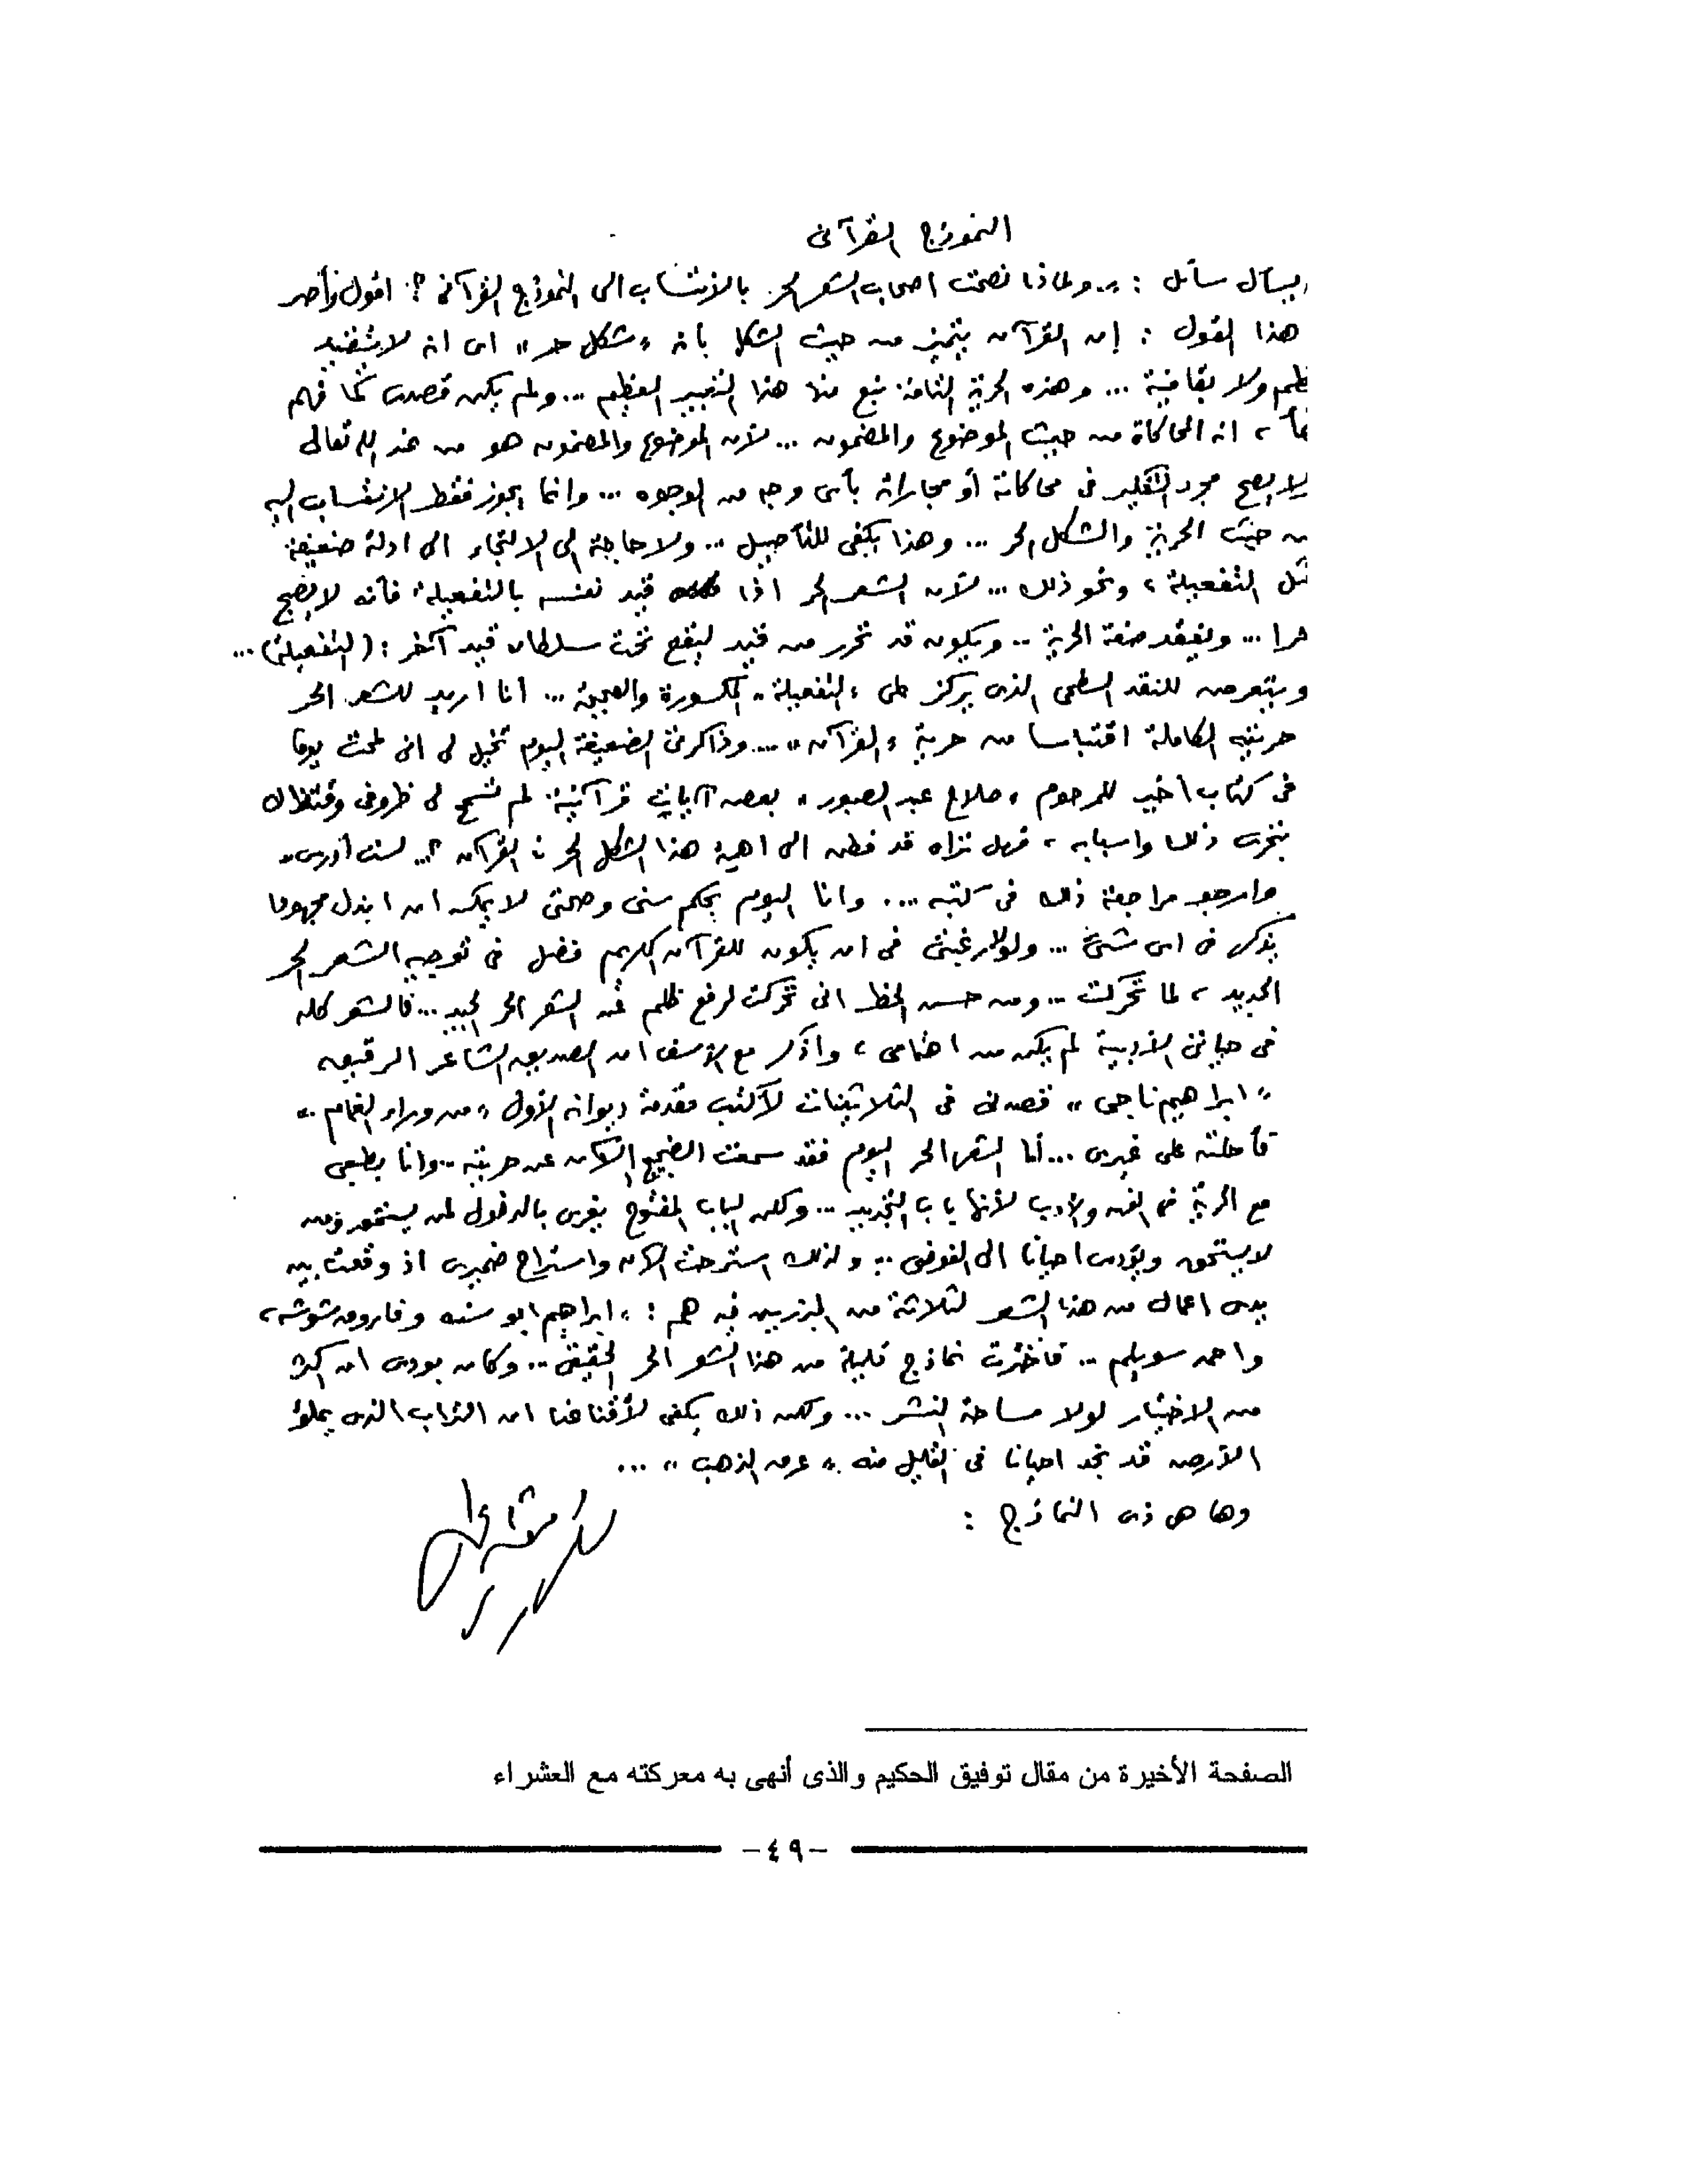 النموذج القرآنى
يسأل سائل : .. ولماذا نصحت اصحاب الشعر الحر بالانتساب الى النموذج القرآنى ؟. اقول
هذا القول : إن القرآن يتميز من حيث الشكل بأنه « شكل حر » اى انه لا يتقيد
ولا بقافية ... وهذه الحرية التامة نبع منها هذا التعبير العظيم ... ولم يكن قصدى كما فهم
، انه المحاكاة من حيث الموضوع والمضمون ... لأن الموضوع والمضمون هو من عند الله تعالى
لا يصح مجرد التفكير فى محاكاته أو مجاراته بأى وجه من الوجوه ... وانما يجوز فقط الانتساب اليه
من حيث الحرية والشكل الحر ... وهذا يكفى للتأصيل ... ولا حاجة الى الالتجاء الى ادلة ضعيفة
التفعيلة ، ونحو ذلك ... لأن الشعر الحر اذا قيد نفسه بالتفعيلة فأنه لا يصبح
حرا ... ويفقد صفة الحرية .. ويكون قد تحرر من قيد ليقع تحت سلطان قيد آخر : (التفعيلة) ...
ويتعرض للنقد السطحى الذى يركز على « التفعيلة » المكسورة والصحيحة ... أنا اريد للشعر الحر
حريته الكاملة اقتباسا من حرية « القرآن » .... وذاكرتى الضعيفة اليوم تخيل لى انى لمحت يوما
فى كتاب أخير للمرحوم « صلاح عبد الصبور » بعض آيات قرآنية لم تسمح لى ظروفى وقتذاك
بتحرى ذلك واسبابه ، فهل تراه قد فطن الى اهمية هذا الشكل الحر فى القرآن ؟.. لست أدرى ..
وارجو مراجعة ذلك فى كتبه .... وانا اليوم بحكم سنى وصحتى لا يمكن ان ابذل مجهودا
يذكر فى اى شئ ... ولولا رغبتى فى ان يكون للقرآن الكريم فضل فى توجيه الشعر الحر
الجديد ، لما تحركت ... ومن حسن الحظ انى تحركت لرفع ظلم عن الشعر الحر الجيد ... فالشعر كله
فى حياتى الأدبية لم يكن من اهتمامى ، واذكر مع الأسف ان الصديق الشاعر الرقيق
« ابراهيم ناجى » قصدنى فى الثلاثينات لأكتب مقدمة ديوانه الأول « من وراء الغمام »
فأحلته على غيرى ... أما الشعر الحر اليوم فقد سمعت الضجيج الآن عن حريته .. وانا بطبعى
مع الحرية فى الفن والأدب لأنها باب التجديد ... ولكن الباب المفتوح يغرى بالدخول لمن يستحق ومن
لا يستحق ويؤدى احيانا الى الفوضى .. ولذلك استرحت الآن واستراح ضميرى اذ وقعت بين
يدى اعمال من هذا الشعر لثلاثة من المبرزين فيه هم : « ابراهيم ابو سنه وفاروق شوشه ،
واحمد سويلم .. فاخترت نماذج قليلة من هذا الشعر الحر الحقيقى .. وكان بودى ان اكثر
من الاختيار لولا مساحة النشر ... ولكن ذلك يكفى لأقناعنا ان التراب الذى يملؤ
الأرض قد نجد احيانا فى القليل منه « عرق الذهب » ...
وها هى ذى النماذج :
الصفحة الأخيرة من مقال توفيق الحكيم والذى أنهى به معركته مع العشراء
-٤٩-